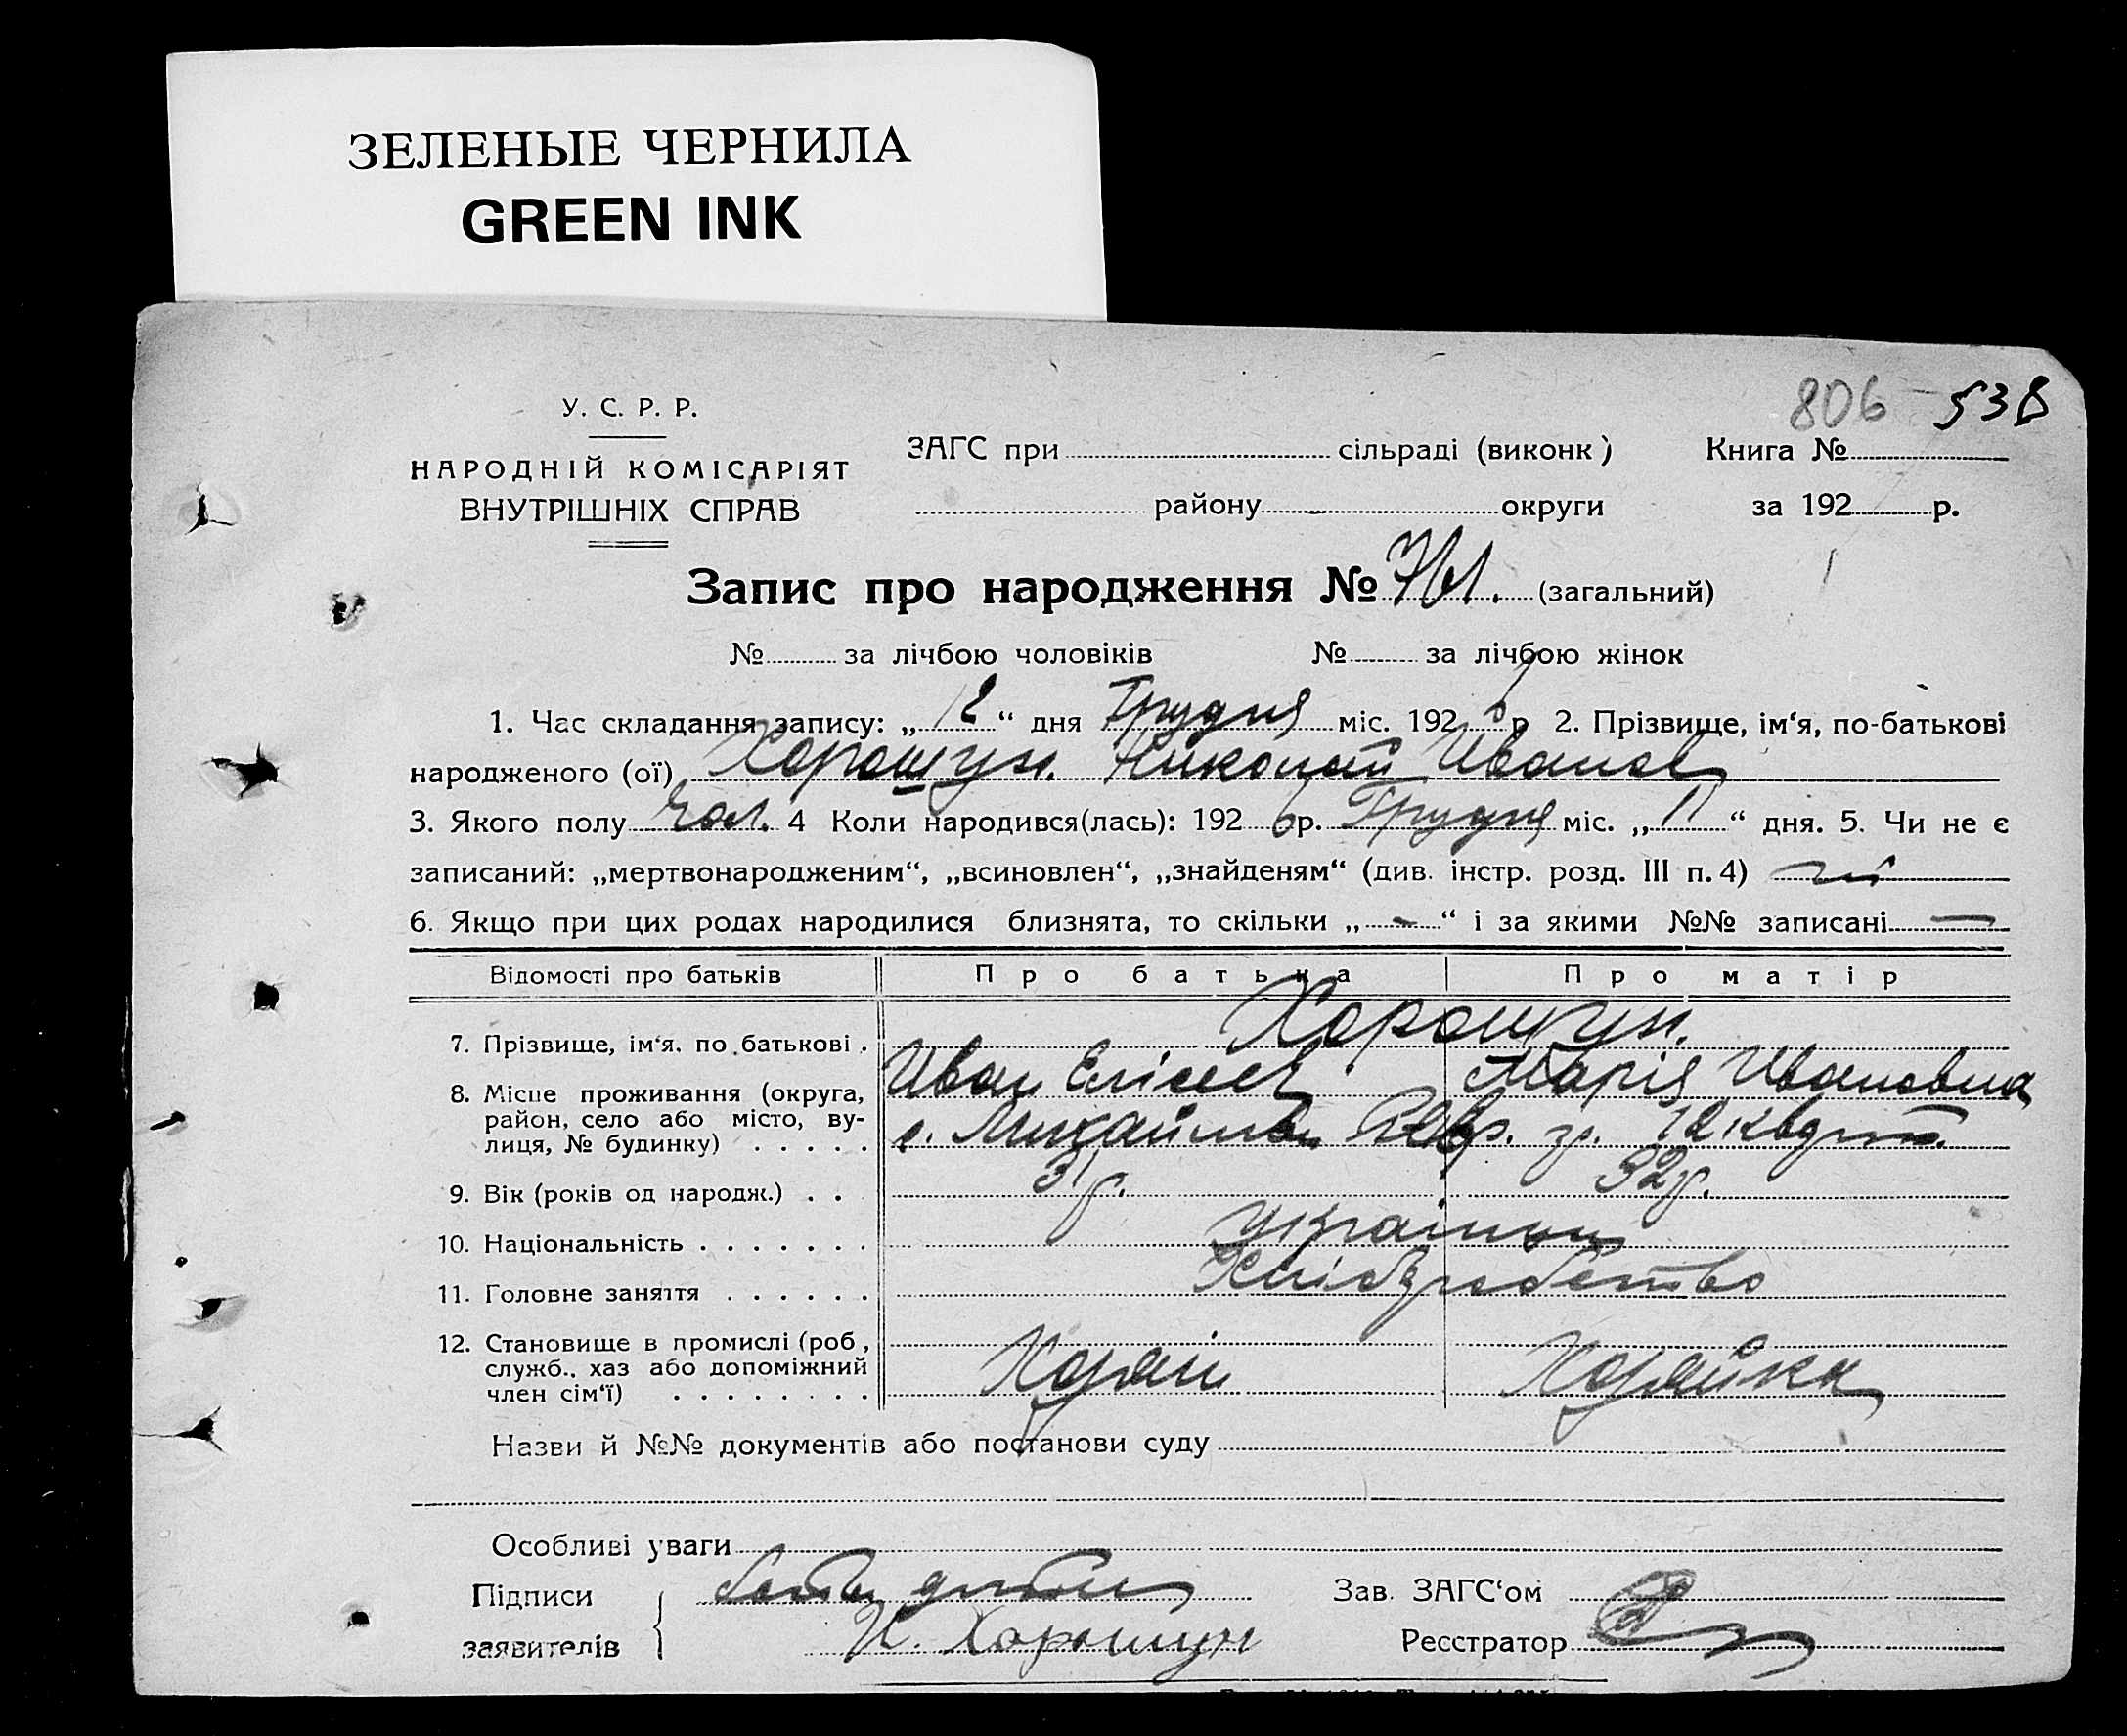 ЗЕЛЕНЫЕ ЧЕРНИЛА
GREEN INK
806 538
У. С. Р. Р.
НАРОДНІЙ КОМІСАРІЯТ
ВНУТРІШНІХ СПРАВ
ЗАГС при сільраді (виконк) Книга №
району округи за 192 р.
Запис про народження № 761. (загальний)
№ за лічбою чоловіків № за лічбою жінок
1. Час складання запису: „12“ дня Грудня міс. 1926 р 2. Прізвище, ім‘я, по-батькові
народженого (ої) Хорошун. Николай Иванов
3. Якого полу чол. 4 Коли народився(лась): 1926 р. Грудня міс. „11“ дня. 5. Чи не є
записаний: „мертвонародженим“, „всиновлен“, „знайденям“ (див. інстр. розд. III п. 4) ні
6. Якщо при цих родах народилися близнята, то скільки „-“ і за якими №№ записані —
Відомості про батьків Про батька Про матір
Хорошун.
7. Прізвище, ім‘я, по батькові . Иван Елісеев Марія Ивановна
8. Місце проживання (округа,
район, село або місто, ву-
лиця, № будинку) . . . . . с. Михайлівка 12
9. Вік (років од народж.) . . 31 р. 32 р.
10. Національність . . . . . . . українці
11. Головне заняття . . . . . . Хліборобство
12. Становище в промислі (роб,
служб., хаз або допоміжний
член сім‘ї) . . . . . . . . Хозяїн Хозяйка
Назви й №№ документів або постанови суду
Особливі уваги
Підписи батько дитини Зав. ЗАГС‘ом
заявителів И. Хорошун Реєстратор